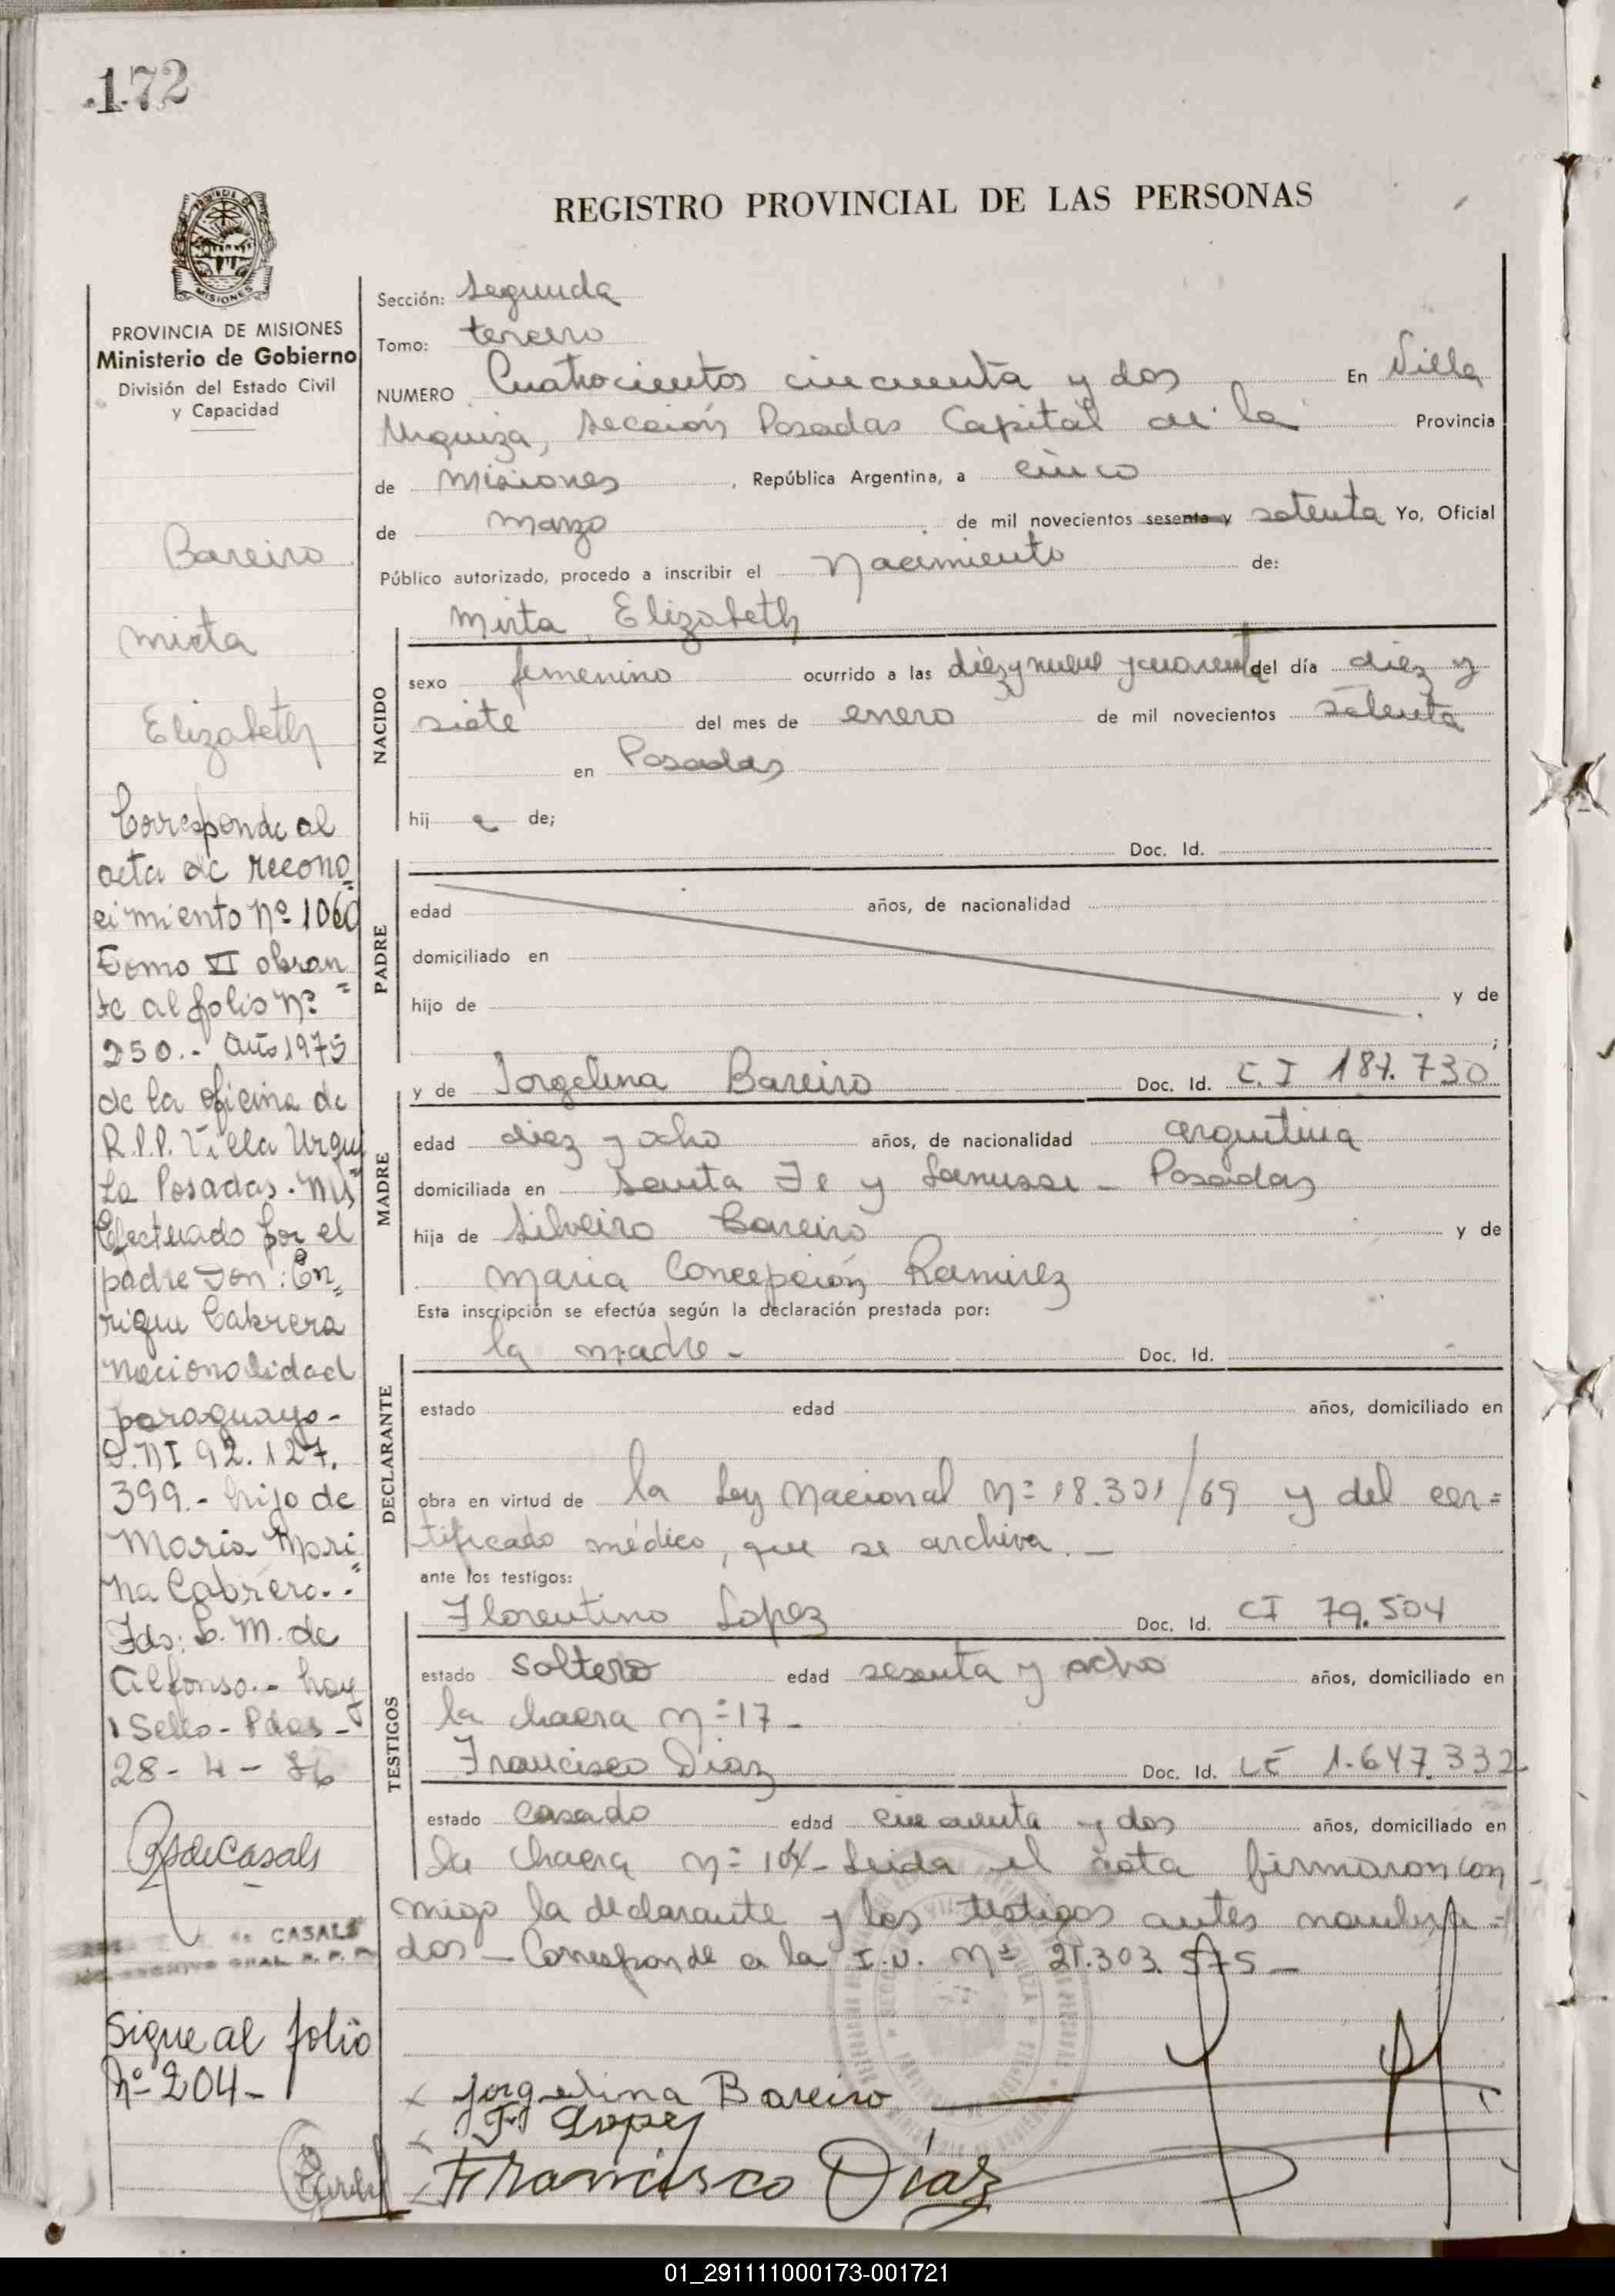 172
REGISTRO PROVINCIAL DE LAS PERSONAS
MISIONES
PROVINCIA DE MISIONES
Ministerio de Gobierno
División del Estado Civil
y Capacidad
Bareiro
Mirta
Elizabeth
Corresponde al
acta de recono=
cimiento Nº 1060
Tomo VI obran=
te al folio Nº
250.- Año 1975
de la oficina de
R.P.P. Villa Urqui
za Posadas. Mis
Efectuado por el
padre Don: En=
rique Cabrera
nacionalidad
paraguayo-
D.NI 92.127.
399.- hijo de
Maria Mari
na Cabrera.-
Fdo: L. M. de
Alfonso.- hay
1 Sello - Pdas -
28 - 4 - 86
RsdeCasals
de CASALS
ARCHIVO GRAL R. P. P.
Sigue al folio
Nº 204-
Sección: Segunda
Tomo: tercero
NUMERO Cuatrocientos cincuenta y dos En Villa
Urquiza, Sección Posadas Capital de la Provincia
de Misiones, República Argentina, a cinco
de marzo de mil novecientos sesenta y setenta Yo, Oficial
Público autorizado, procedo a inscribir el Nacimiento de:
Mirta Elizabeth
NACIDO
sexo femenino ocurrido a las diez y nueve y cuarenta del día diez y
siete del mes de enero de mil novecientos setenta
en Posadas
hij a de;
Doc. Id.
PADRE
edad años, de nacionalidad
domiciliado en
hijo de y de
;
MADRE
y de Jorgelina Bareiro Doc. Id. C.I 187.730
edad diez y ocho años, de nacionalidad argentina
domiciliada en Santa Fe y Lanusse - Posadas
hija de Silveiro Bareiro y de
Maria Concepción Ramirez
Esta inscripción se efectúa según la declaración prestada por:
la madre - Doc. Id.
DECLARANTE
estado edad años, domiciliado en
obra en virtud de la Ley Nacional Nº 18.301/69 y del cer=
tificado médico, que se archiva. -
ante los testigos:
TESTIGOS
Florentino Lopez Doc. Id. CI 79.504
estado soltero edad sesenta y ocho años, domiciliado en
la chacra Nº 17 -
Francisco Diaz Doc. Id. LE 1.647.332
estado casado edad cincuenta y dos años, domiciliado en
la chacra Nº 104 - Leida el acta firmaron con
migo la declarante y los testigos antes nombra=
dos - Corresponde a la I.U. Nº 21.303.575 -
x Jorgelina Bareiro
x F. Lopez
Francisco Díaz
01_291111000173-001721